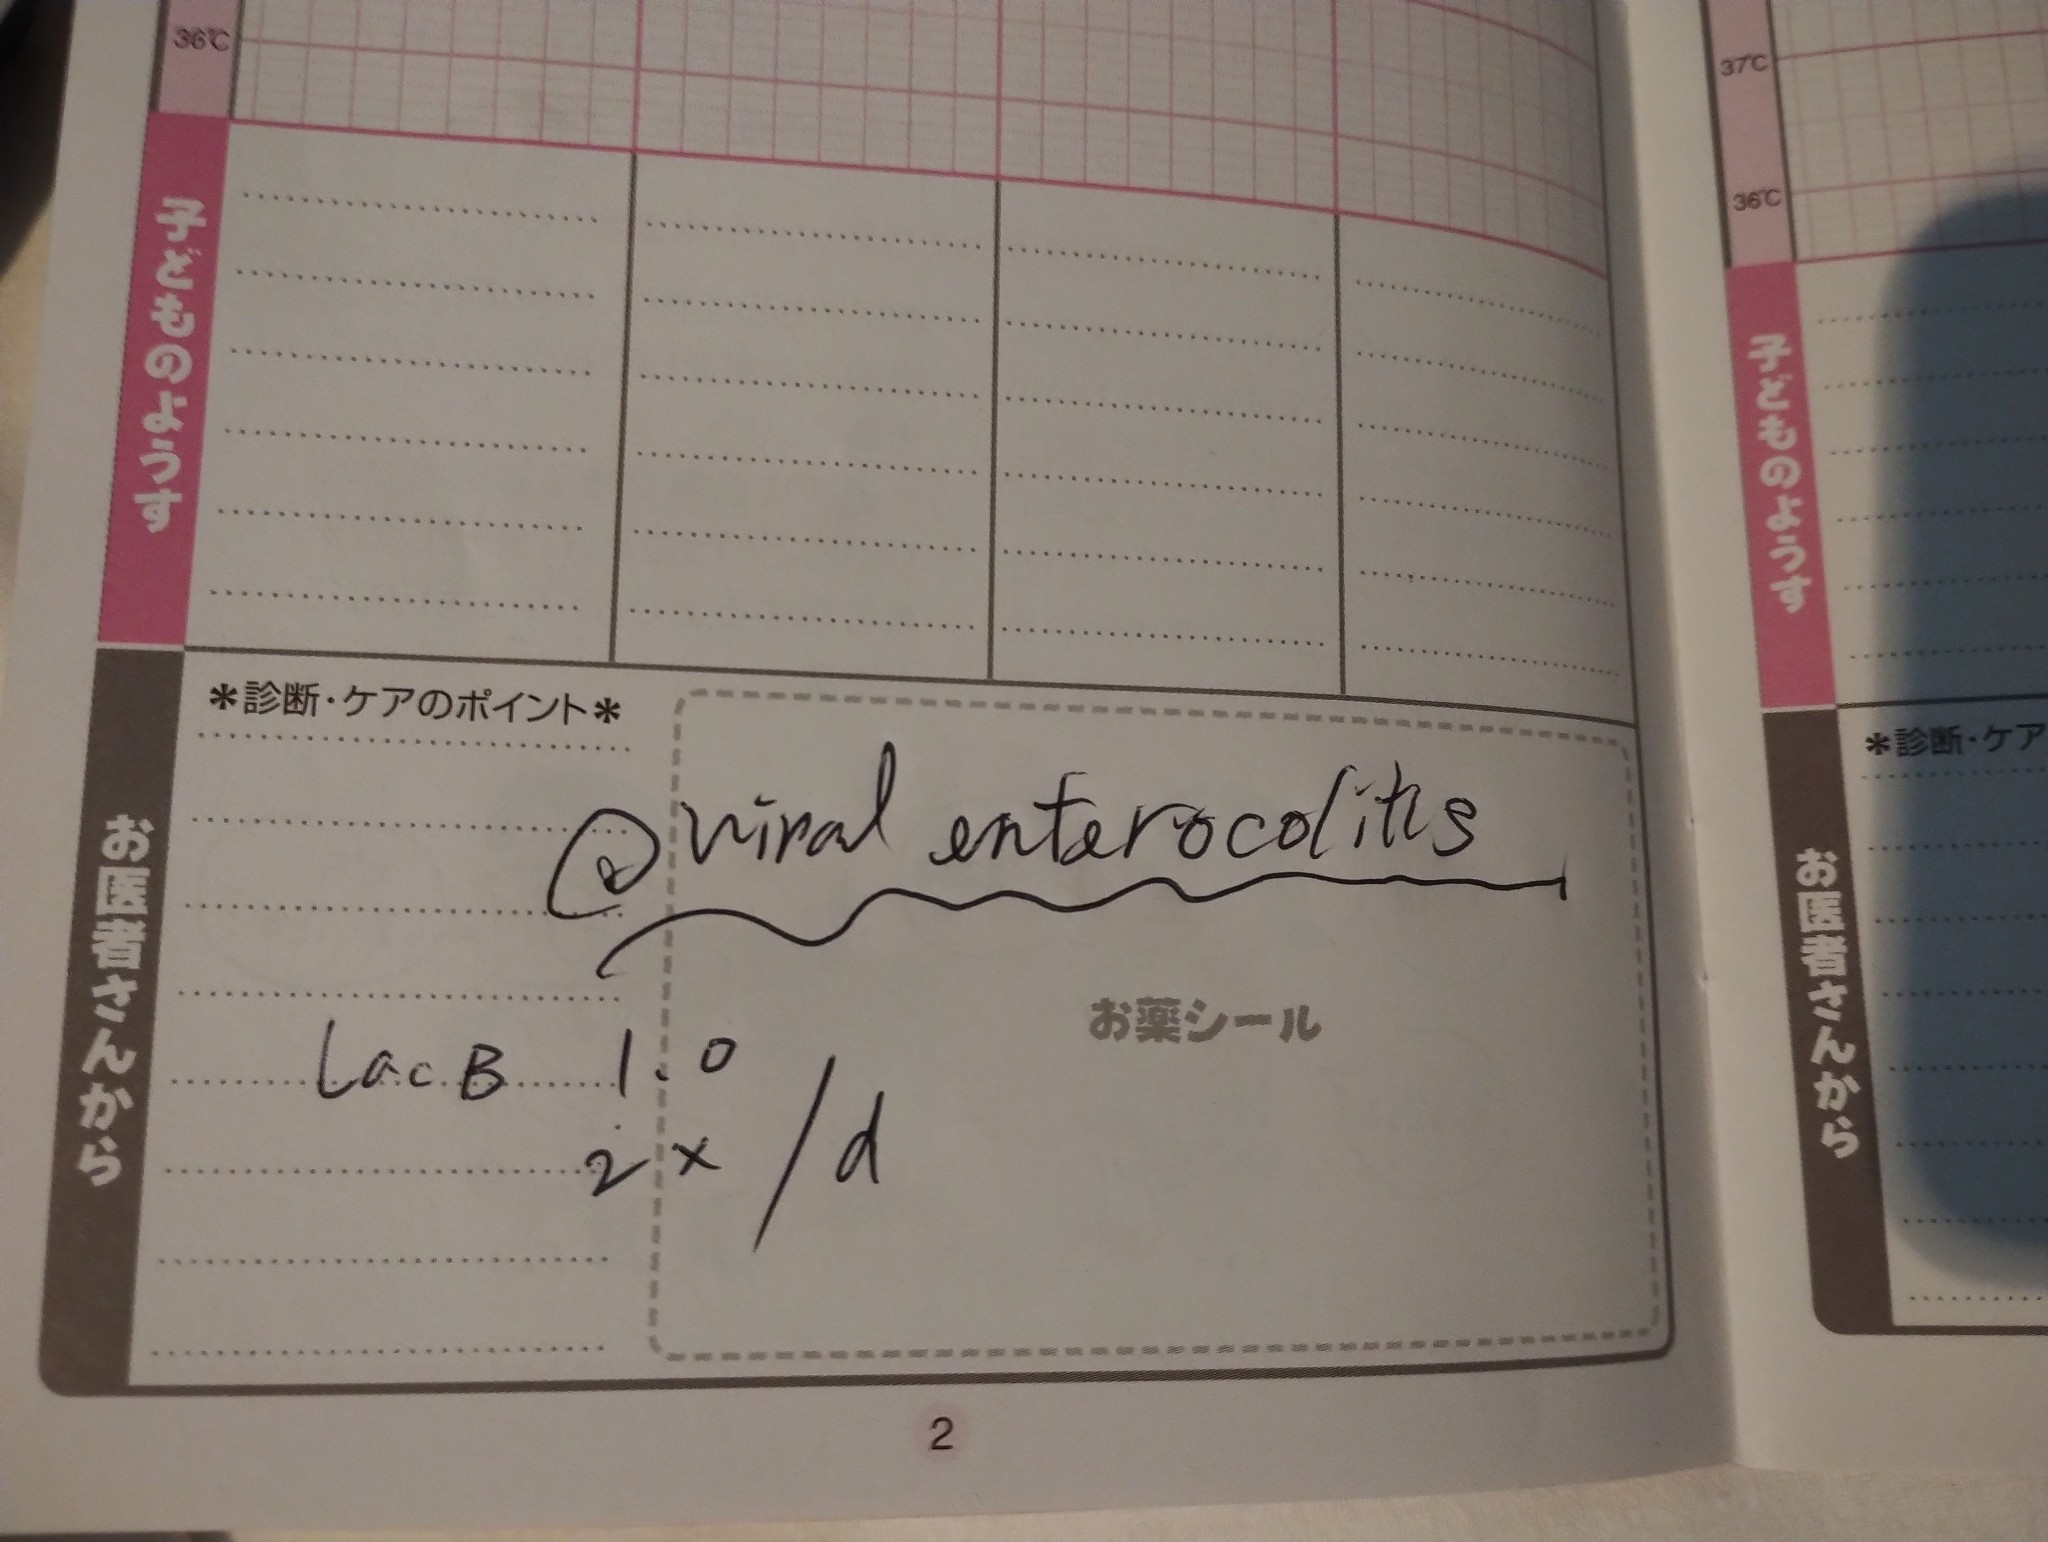 36℃
子どものようす
お医者さんから
＊診断・ケアのポイント＊
viral enterocolitis
お薬シール
Lac B 1.0
2x /d
2
37℃
36℃
子どものようす
＊診断・ケア
お医者さんから